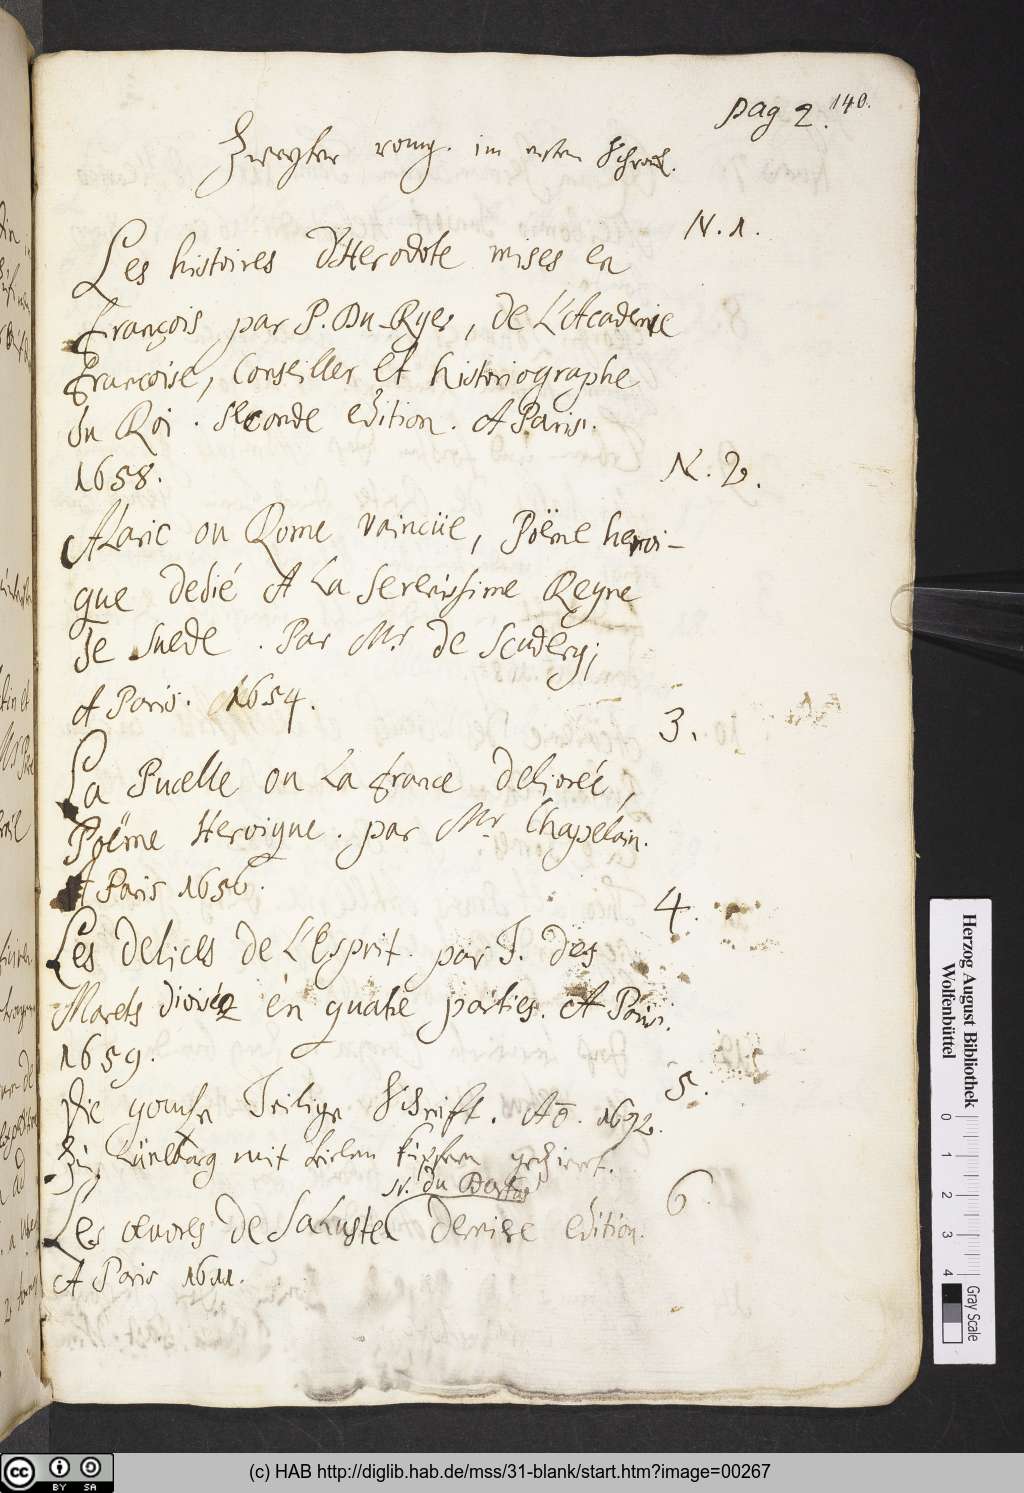 pag 2. 140.
Zweyter rang. im ersten Schranck.
N. 1.
Les histoires d'Herodote mises en
François par P. Du-Ryer, de L'Academie
françoise, Conseiller et historiographe
du Roi. seconde edition. A Paris.
1658.
N. 2.
Alaric ou Rome vaincüe, Poëme heroi-
que dedié A La serenissime Reyne
de suede. Par Mr. de Scudery;
A Paris. 1654.
3.
La Pucelle ou La france delivreé,
Poëme Heroique. par Mr Chapelain.
A Paris 1656.
4.
Les delices de L'Esprit. par J. des
Marets divisèz en quatre parties. A Paris.
1659.
5.
Die gantze Heilige Schrifft. Aō. 1692.
Zu Lüneburg mit vielen küpfern geziert.
6
Les œuvres de Saluste derniere edition.
A Paris 1611.
Herzog August Bibliothek
Wolfenbüttel
0 1 2 3 4
Gray Scale
cc BY SA
(c) HAB http://diglib.hab.de/mss/31-blank/start.htm?image=00267